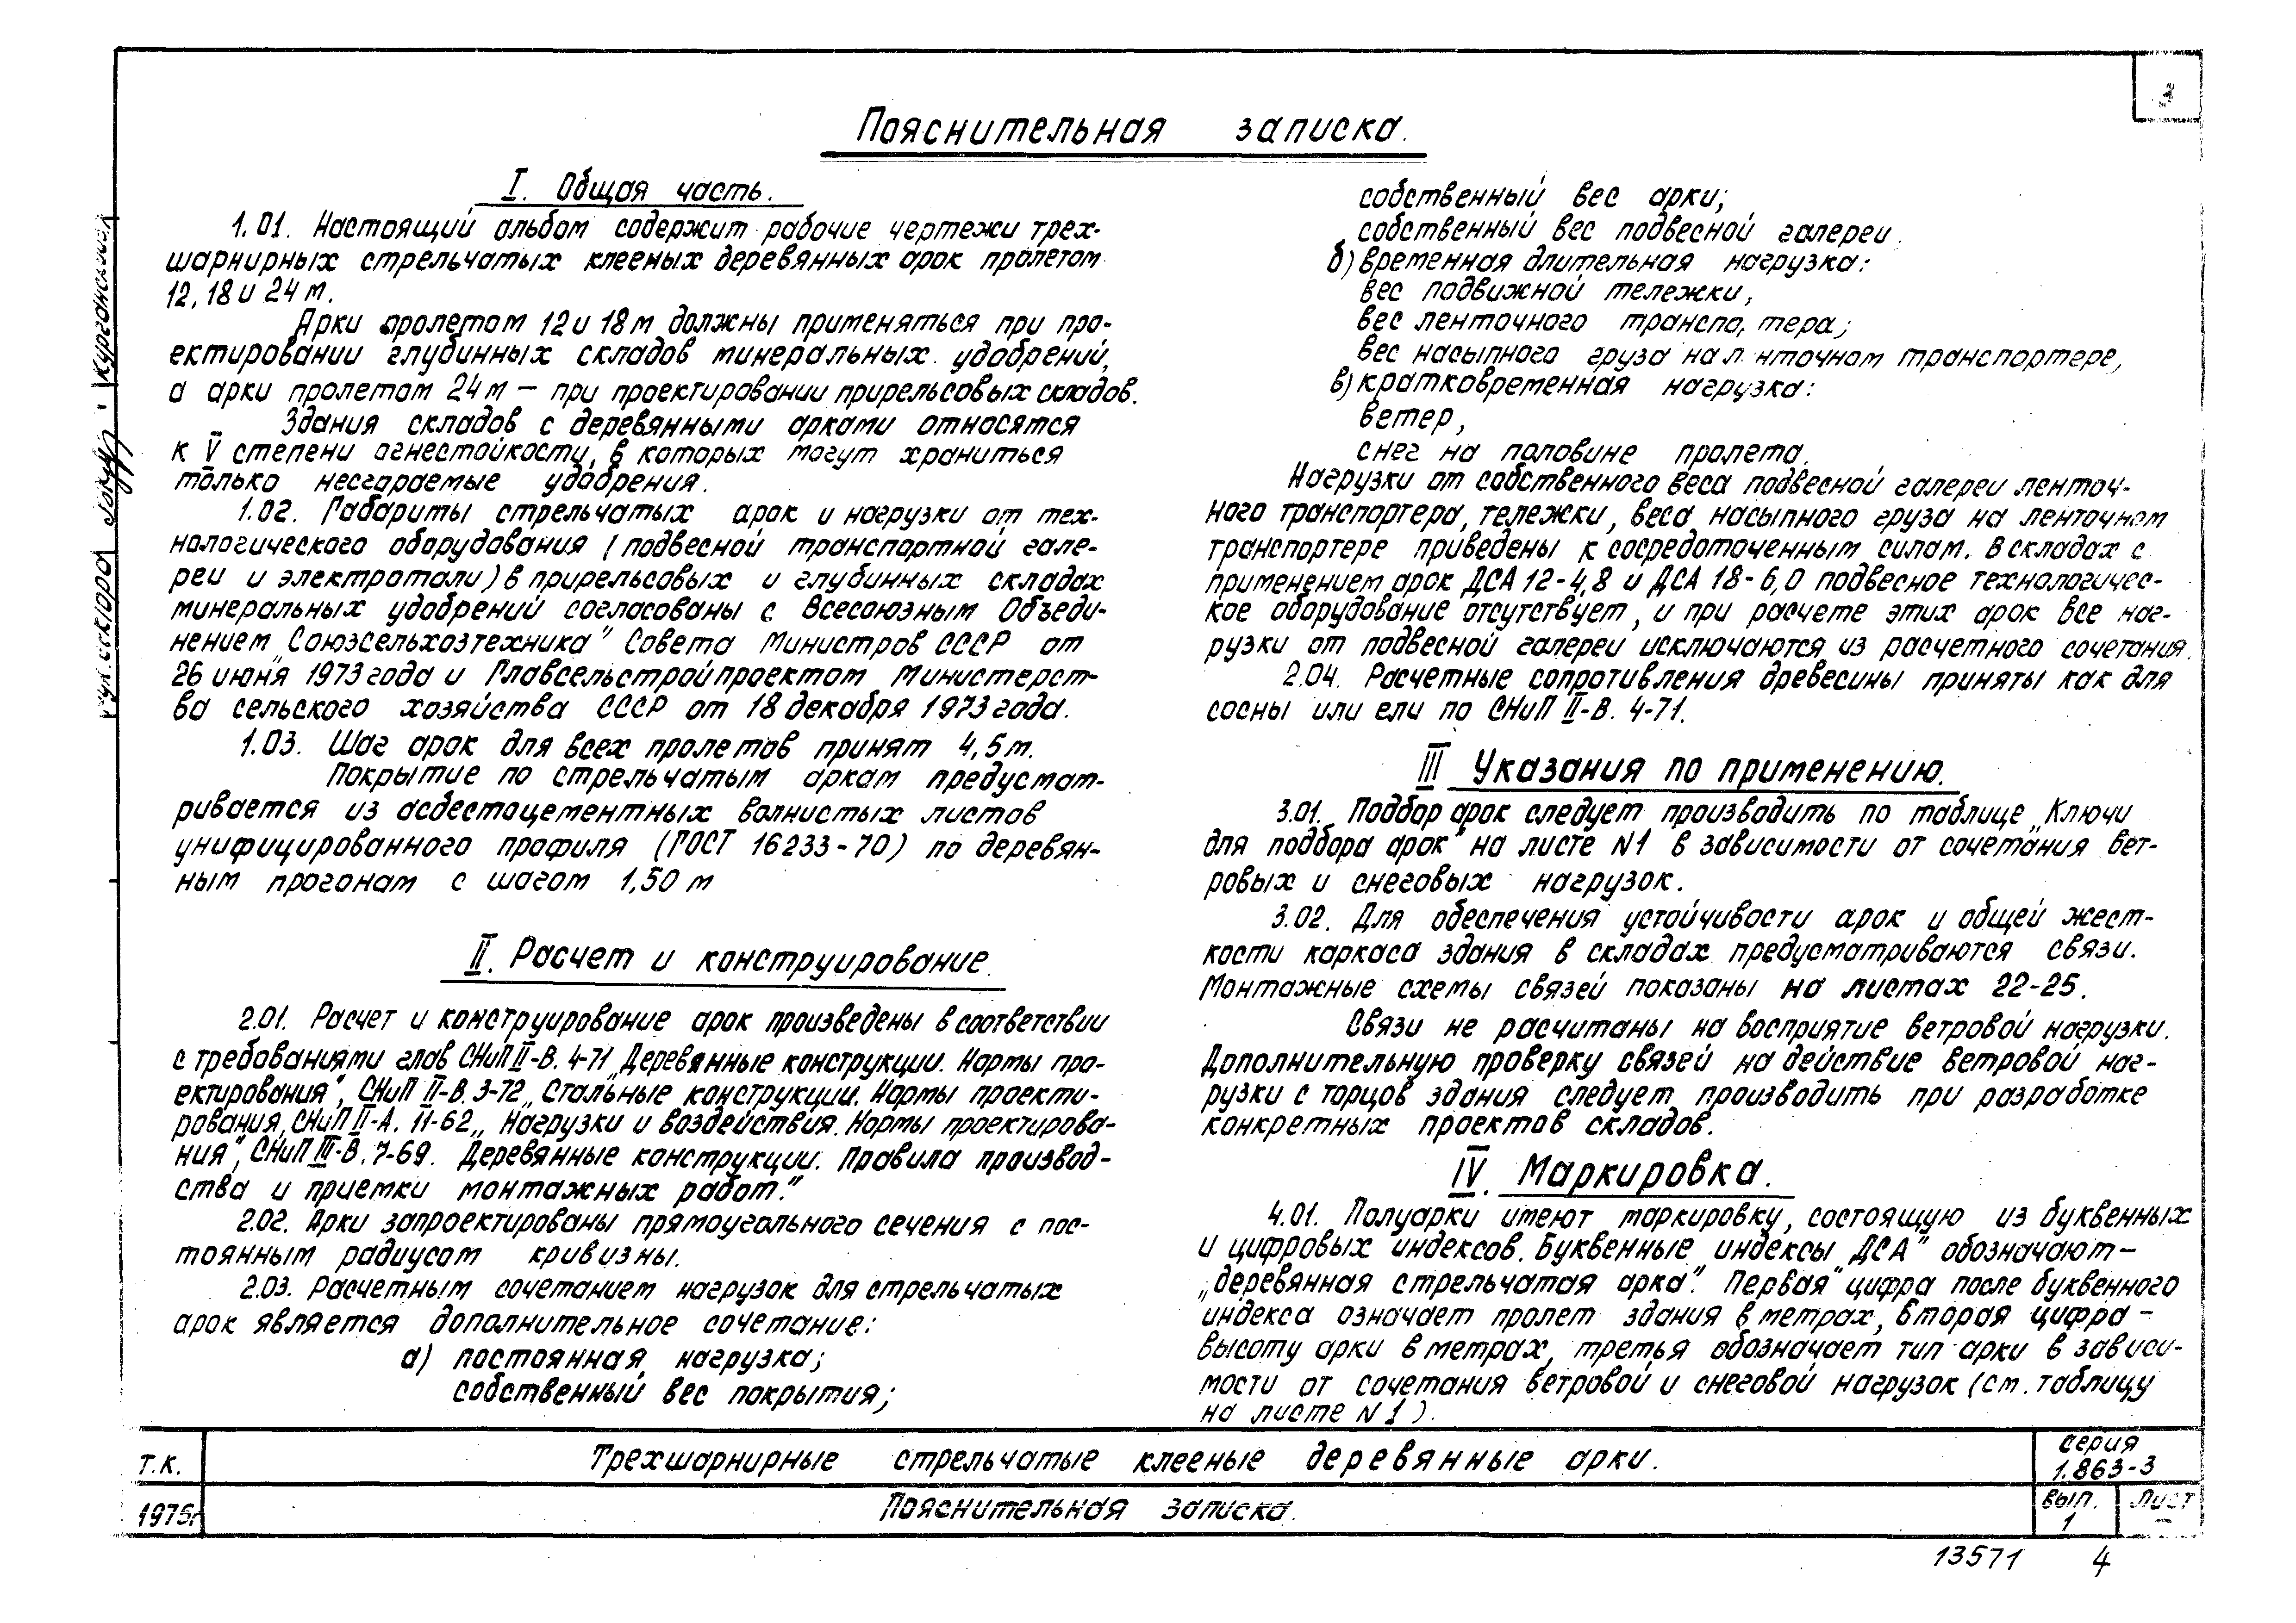 3
Пояснительная записка.
I. Общая часть.
1.01. Настоящий альбом содержит рабочие чертежи трех-
шарнирных стрельчатых клееных деревянных арок пролетом
12, 18 и 24 м.
Арки пролетом 12 и 18 м должны применяться при про-
ектировании глубинных складов минеральных удобрений,
а арки пролетом 24 м – при проектировании прирельсовых складов.
Здания складов с деревянными арками относятся
к V степени огнестойкости, в которых могут храниться
только несгораемые удобрения.
1.02. Габариты стрельчатых арок и нагрузки от тех-
нологического оборудования (подвесной транспортной гале-
реи и электротали) в прирельсовых и глубинных складах
минеральных удобрений согласованы с Всесоюзным Объеди-
нением „Союзсельхозтехника" Совета Министров СССР от
26 июня 1973 года и Главсельстройпроектом Министерст-
ва сельского хозяйства СССР от 18 декабря 1973 года.
1.03. Шаг арок для всех пролетов принят 4,5 м.
Покрытие по стрельчатым аркам предусмат-
ривается из асбестоцементных волнистых листов
унифицированного профиля (ГОСТ 16233-70) по деревян-
ным прогонам с шагом 1,50 м
II. Расчет и конструирование.
2.01. Расчет и конструирование арок произведены в соответствии
с требованиями глав СНиП II-В. 4-71 „Деревянные конструкции. Нормы про-
ектирования", СНиП II-В. 3-72 „Стальные конструкции. Нормы проекти-
рования, СНиП II-А. 11-62 „Нагрузки и воздействия. Нормы проектирова-
ния", СНиП III-В. 7-69. Деревянные конструкции. Правила производ-
ства и приемки монтажных работ."
2.02. Арки запроектированы прямоугольного сечения с пос-
тоянным радиусом кривизны.
2.03. Расчетным сочетанием нагрузок для стрельчатых
арок является дополнительное сочетание:
а) постоянная нагрузка;
собственный вес покрытия;
собственный вес арки;
собственный вес подвесной галереи.
б) временная длительная нагрузка:
вес подвижной тележки,
вес ленточного транспортера;
вес насыпного груза на ленточном транспортере,
в) кратковременная нагрузка:
ветер,
снег на половине пролета.
Нагрузки от собственного веса подвесной галереи ленточ-
ного транспортера, тележки, веса насыпного груза на ленточном
транспортере приведены к сосредоточенным силам. В складах с
применением арок ДСА 12-4,8 и ДСА 18-6,0 подвесное технологичес-
кое оборудование отсутствует, и при расчете этих арок все наг-
рузки от подвесной галереи исключаются из расчетного сочетания.
2.04. Расчетные сопротивления древесины приняты как для
сосны или ели по СНиП II-В. 4-71.
III Указания по применению.
3.01. Подбор арок следует производить по таблице „Ключи
для подбора арок" на листе N1 в зависимости от сочетания вет-
ровых и снеговых нагрузок.
3.02. Для обеспечения устойчивости арок и общей жест-
кости каркаса здания в складах предусматриваются связи.
Монтажные схемы связей показаны на листах 22-25.
Связи не расчитаны на восприятие ветровой нагрузки.
Дополнительную проверку связей на действие ветровой наг-
рузки с торцов здания следует производить при разработке
конкретных проектов складов.
IV. Маркировка.
4.01. Полуарки имеют маркировку, состоящую из буквенных
и цифровых индексов. Буквенные индексы „ДСА" обозначают –
„деревянная стрельчатая арка". Первая цифра после буквенного
индекса означает пролет здания в метрах, вторая цифра –
высоту арки в метрах, третья обозначает тип арки в зависи-
мости от сочетания ветровой и снеговой нагрузок (см. таблицу
на листе N 1).
Т.К.
Трехшарнирные стрельчатые клееные деревянные арки.
серия
1.863-3
1975г
Пояснительная записка.
вып.
1
Лист
–
13571 4